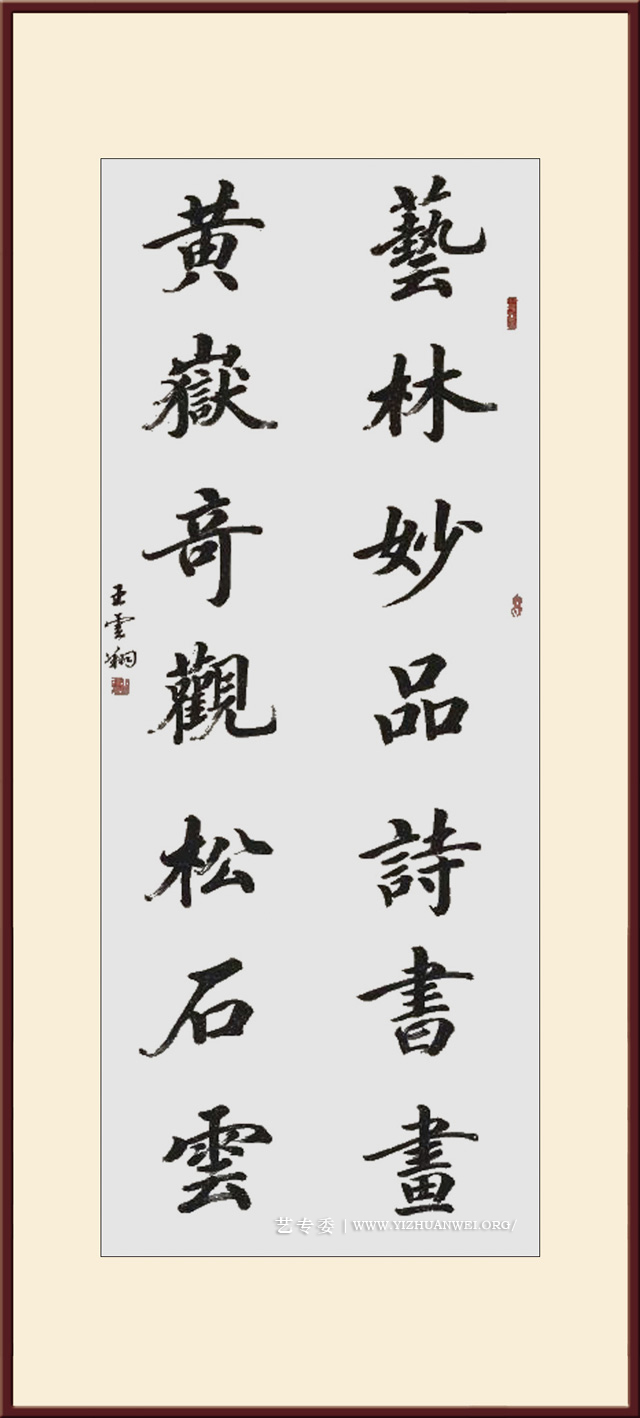 藝林妙品詩書畫
黄嶽奇觀松石雲
王雲翔
艺专委 | WWW.YIZHUANWEI.ORG/